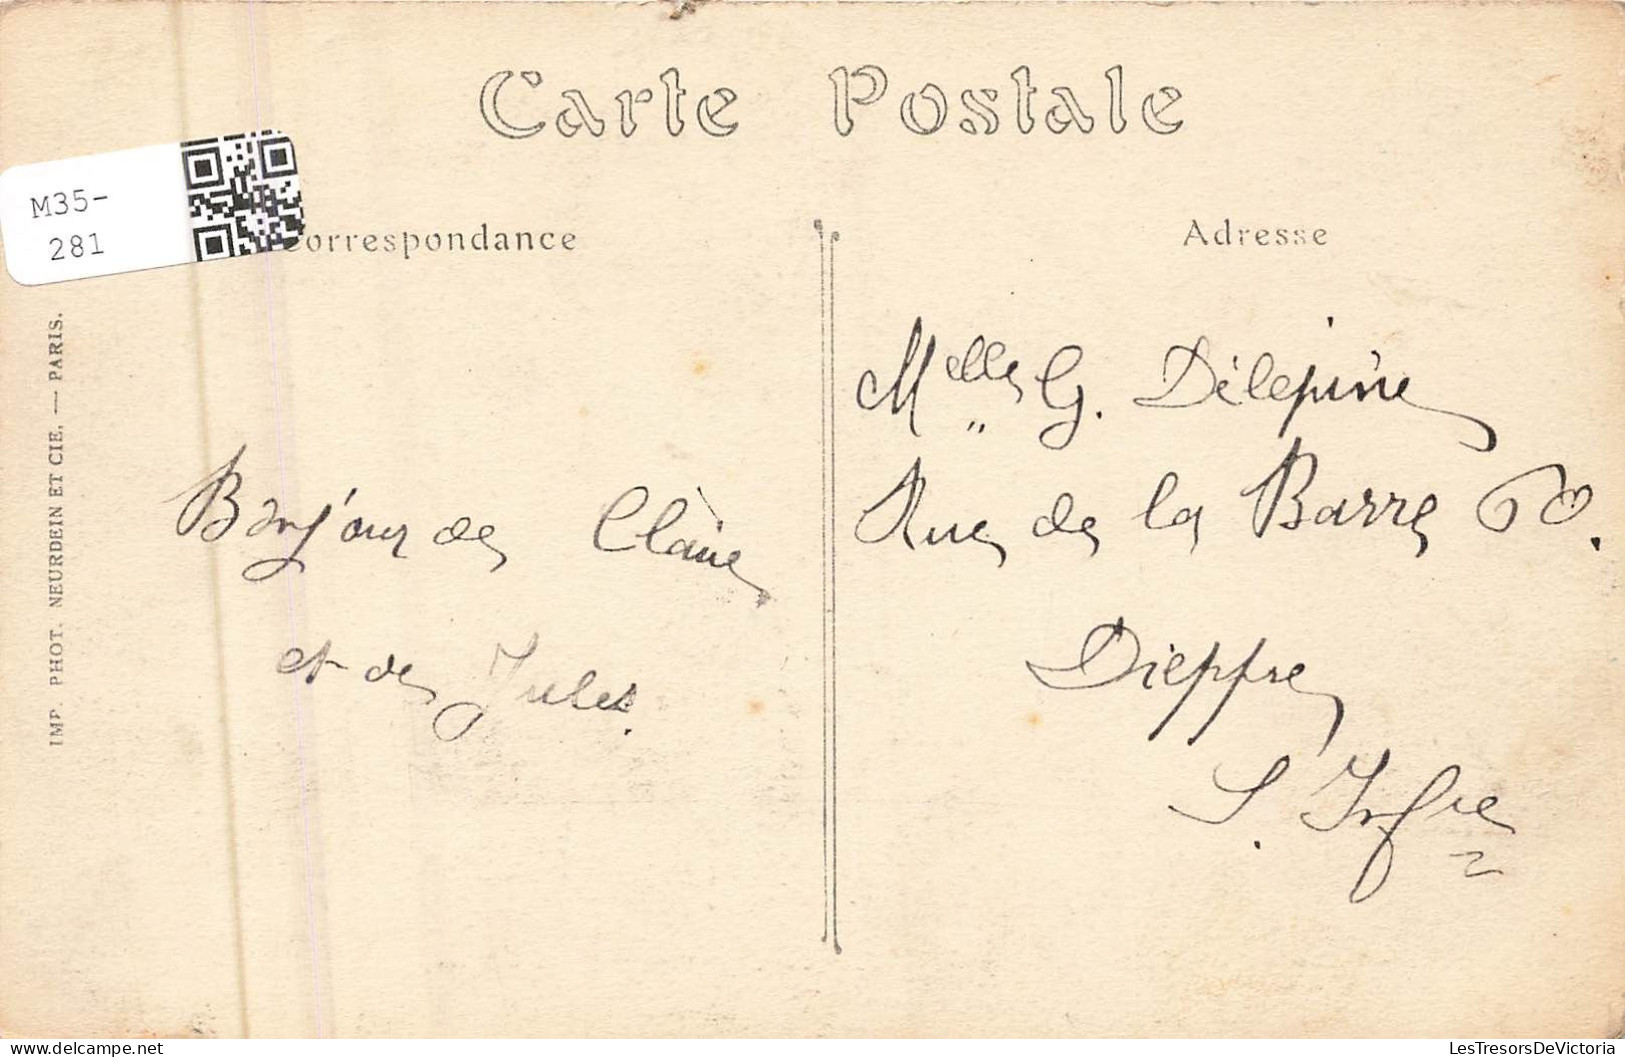 Carte Postale
M35-
281
Correspondance
Adresse
IMP. PHOT. NEURDEIN ET CIE. — PARIS.
Bonjour de Claire
et de Jules.
Melle G. Délépine
Rue de la Barre 60.
Dieppe
S. Infre
LesTresorsDeVictoria